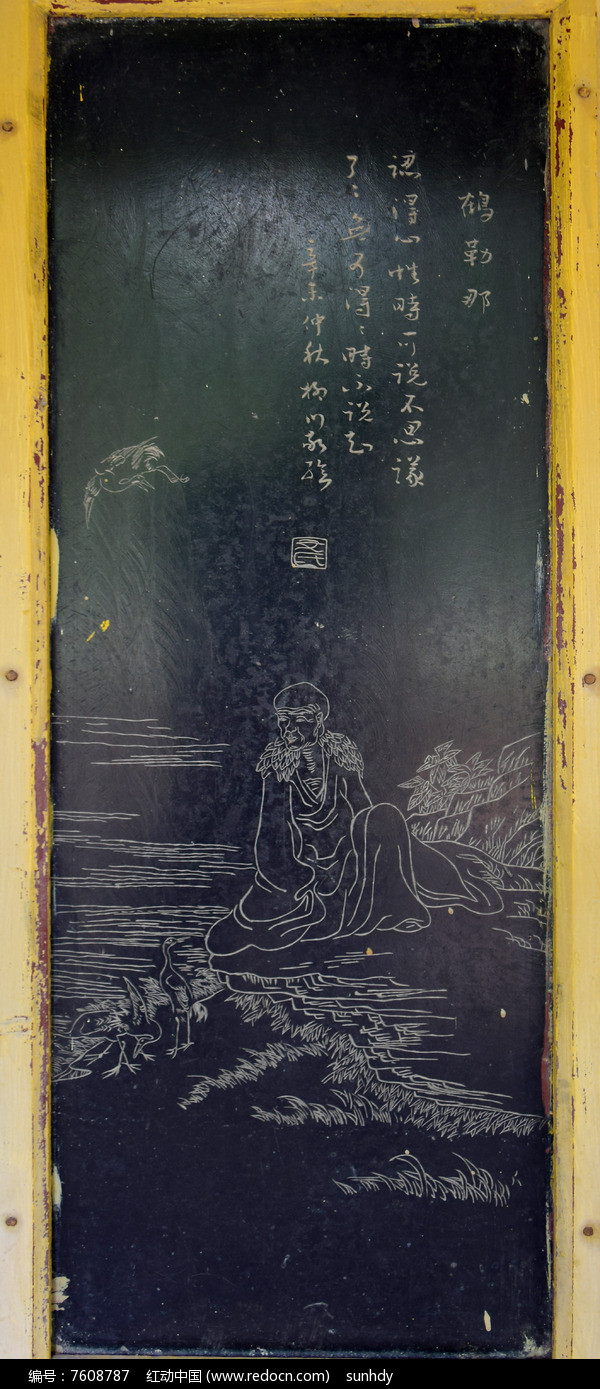 鶴勒那
認得心性時可说不思議
了〻無可得〻時不说知
辛未仲秋
编号:7608787 红动中国 (www.redocn.com) sunhdy